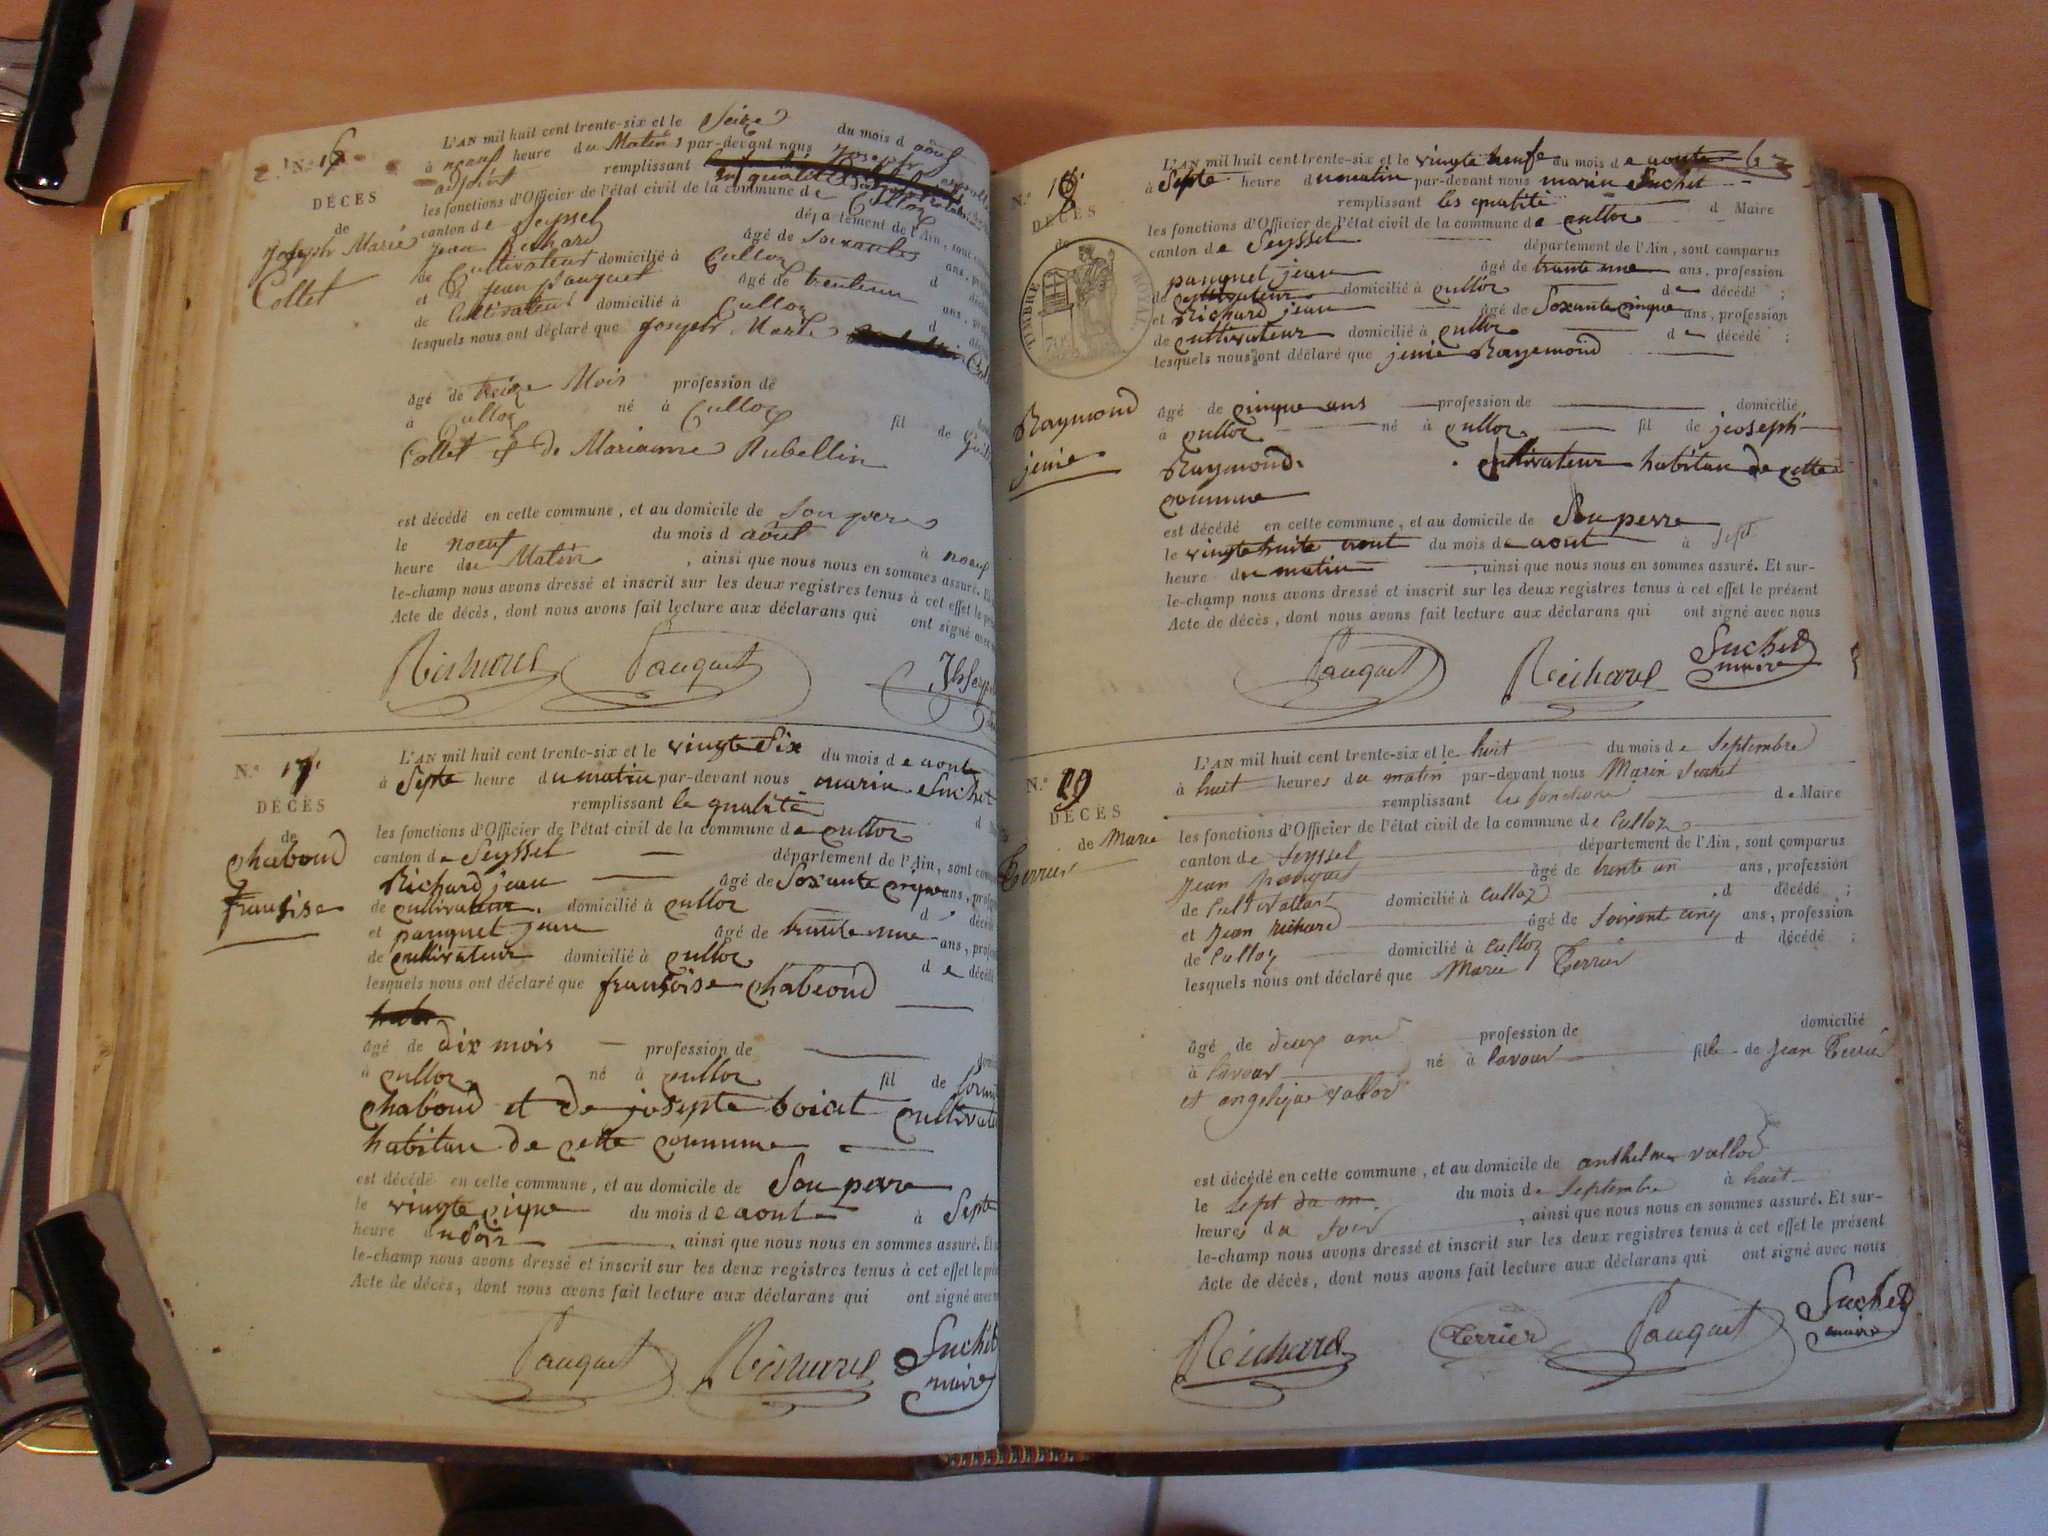 N.° 16
DÉCÈS
de
Joseph Marie
Collet
L'AN mil huit cent trente-six et le Seize du mois d août
à neuf heure du Matin par-devant nous Joseph
adjoint remplissant
les fonctions d'Officier de l'état civil de la commune de Culloz
canton de Seyssel département de l'Ain, sont
Jean Richard âgé de Soixante ans,
de Cultivateur domicilié à Culloz d
et de jean pauquet âgé de trenteun ans,
de Cultivateur domicilié à Culloz d
lesquels nous ont déclaré que Joseph Marie
âgé de treize Mois profession de
à Culloz né à Culloz fil de
Collet et de Marianne Rubellin
est décédé en cette commune, et au domicile de Son père
le noeuf du mois d août à noeuf
heure du Matin, ainsi que nous nous en sommes assuré. Et
le-champ nous avons dressé et inscrit sur les deux registres tenus à cet effet le
Acte de décès, dont nous avons fait lecture aux déclarans qui ont signé avec
Richard Pauquet
N.° 17
DÉCÈS
de
Chaboud
franSise
L'AN mil huit cent trente-six et le vingte Six du mois de aoute
à Septe heure du matin par-devant nous marin Suchet
remplissant le qualité d
les fonctions d'Officier de l'état civil de la commune de culloz
canton de Seyssel département de l'Ain, sont
Richard jean âgé de Soxante cinque ans,
de cultivateur domicilié à culloz d
et pauquet jean âgé de trante une ans,
de cultivateur domicilié à culloz de décédé
lesquels nous ont déclaré que franSoise Chabeoud
âgé de dix mois profession de
à culloz né à culloz fil de
Chaboud et de josepte boiat
habitan de cette commune
est décédé en cette commune, et au domicile de Son perre
le vingte cinque du mois de aout à Septe
heure du Soir, ainsi que nous nous en sommes assuré. Et
le-champ nous avons dressé et inscrit sur les deux registres tenus à cet effet le
Acte de décès, dont nous avons fait lecture aux déclarans qui ont signé avec
Pauquet Richard Suchet
maire
N.° 18
DÉCÈS
de
TIMBRE ROYAL
Raymond
jenie
L'AN mil huit cent trente-six et le vingte neufe du mois de aoute
à Septe heure du matin par-devant nous marin Suchet
remplissant les qualité d Maire
les fonctions d'Officier de l'état civil de la commune de culloz
canton de Seyssel département de l'Ain, sont comparus
pauquet jean âgé de trante une ans, profession
de cultivateur domicilié à culloz de décédé;
et Richard jean âgé de Soxante cinque ans, profession
de cultivateur domicilié à culloz de décédé;
lesquels nous ont déclaré que jenie Raymond
âgé de cinque ans profession de domicilié
à culloz né à culloz fil de joseph
Raymond cultivateur habitan de cette
commune
est décédé en cette commune, et au domicile de Son perre
le vingte huite aout du mois de aout à Sept
heure du matin, ainsi que nous nous en sommes assuré. Et sur-
le-champ nous avons dressé et inscrit sur les deux registres tenus à cet effet le présent
Acte de décès, dont nous avons fait lecture aux déclarans qui ont signé avec nous
Pauquet Richard Suchet
maire
N.° 19
DÉCÈS
de Marie
Terrier
L'AN mil huit cent trente-six et le huit du mois de Septembre
à huit heures du matin par-devant nous Marin Suchet
remplissant les fonctions de Maire
les fonctions d'Officier de l'état civil de la commune de Culloz
canton de Seyssel département de l'Ain, sont comparus
Jean Pauquet âgé de trente un ans, profession
de Cultivateur domicilié à Culloz d décédé;
et Jean Richard âgé de Soixante cinq ans, profession
de Culloz domicilié à Culloz d décédé;
lesquels nous ont déclaré que Marie Terrier
âgé de deux ans profession de domicilié
à Lavour né à Lavour fille de Jean Terrier
et angelique vallod
est décédé en cette commune, et au domicile de anthelme vallod
le Sept du m. du mois de Septembre à huit
heures du Soir, ainsi que nous nous en sommes assuré. Et sur-
le-champ nous avons dressé et inscrit sur les deux registres tenus à cet effet le présent
Acte de décès, dont nous avons fait lecture aux déclarans qui ont signé avec nous
Richard Terrier Pauquet Suchet
maire